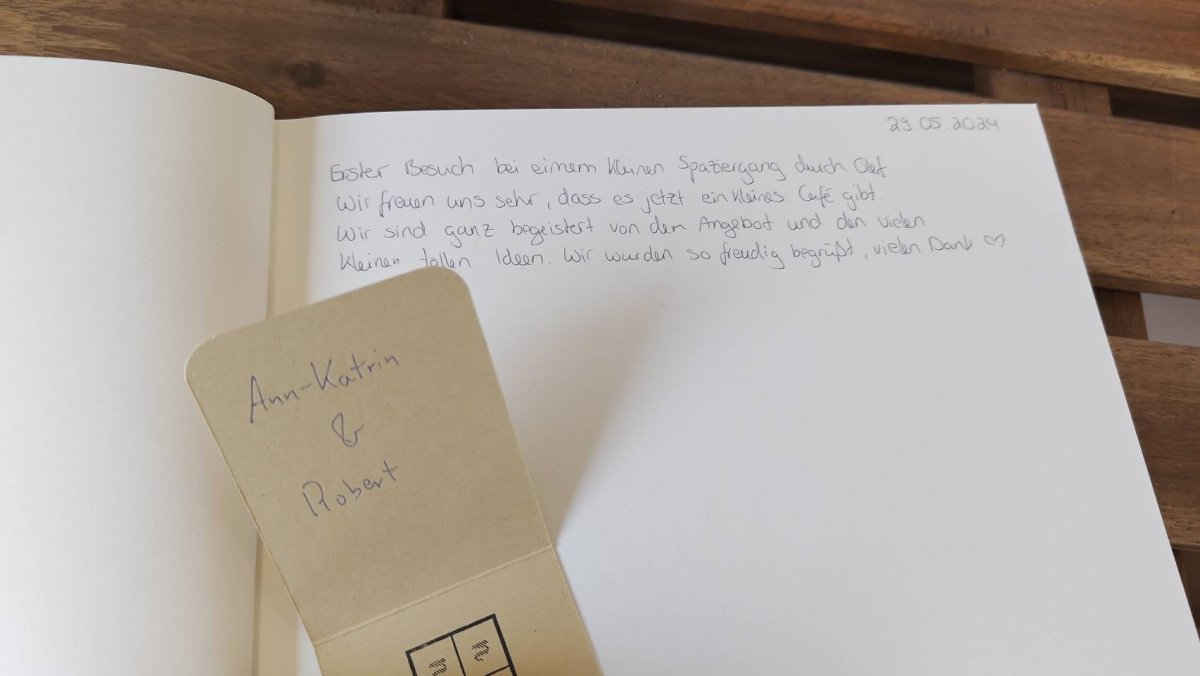 29.05.2024
Erster Besuch bei einem kleinen Spaziergang durch Olef.
Wir freuen uns sehr, dass es jetzt ein kleines Café gibt.
Wir sind ganz begeistert von dem Angebot und den vielen
kleinen tollen Ideen. Wir wurden so freudig begrüßt, vielen Dank ♡
Ann-Katrin
&
Robert